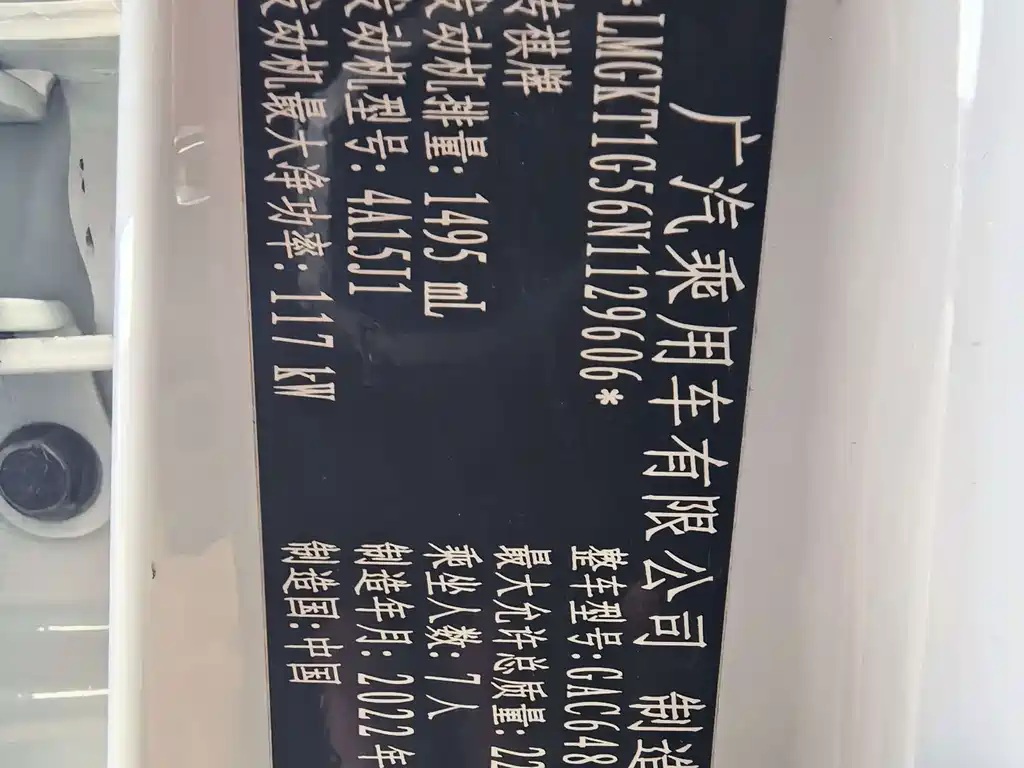 广汽乘用车有限公司 制造
*LMGKT1G56N1129606* 整车型号:GAC648
祺牌 最大允许总质量:22
发动机排量: 1495 mL 乘坐人数: 7人
发动机型号: 4A15J1 制造年月: 2022年
发动机最大净功率: 117 kW 制造国: 中国